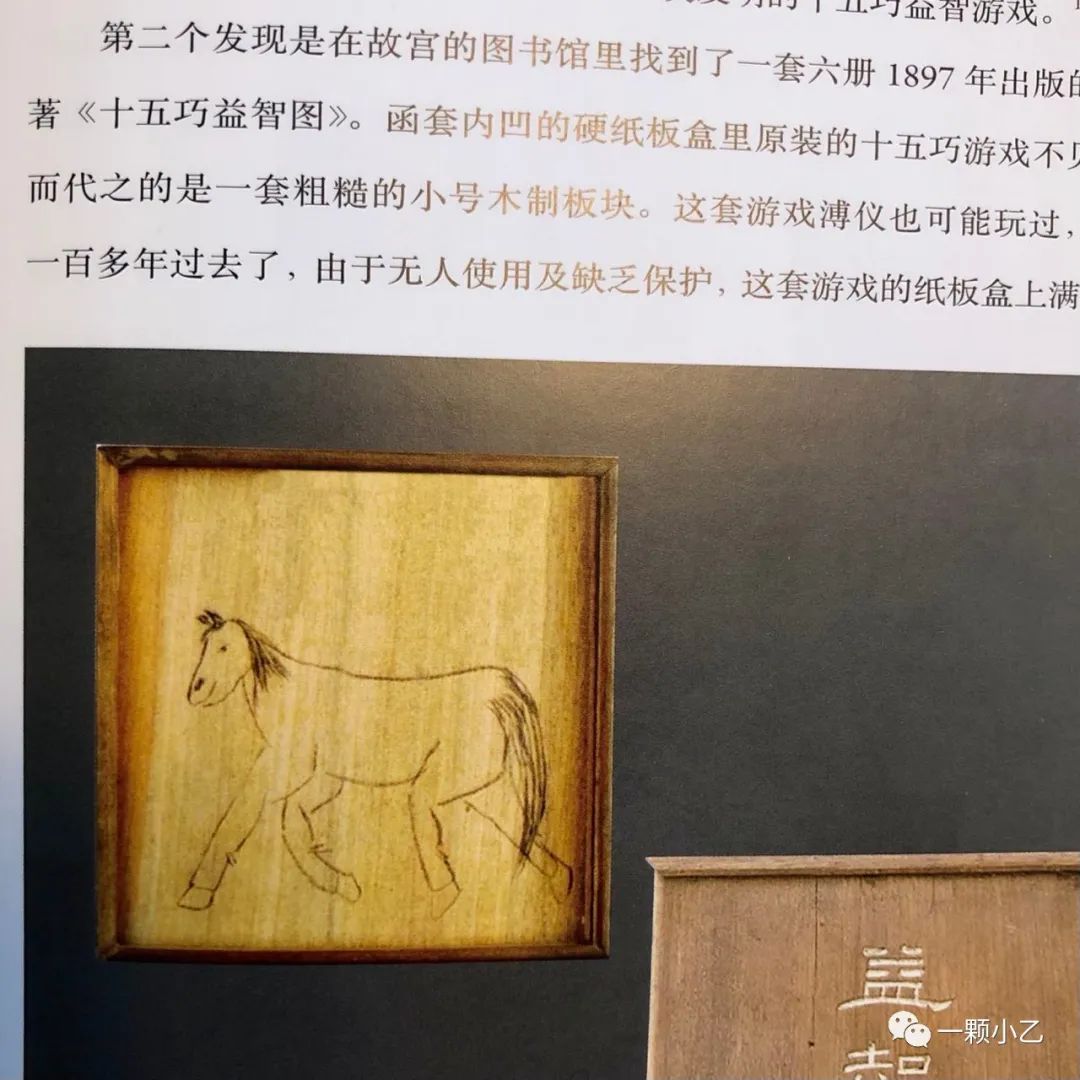 的十五巧益智游戏。
第二个发现是在故宫的图书馆里找到了一套六册 1897 年出版的
著《十五巧益智图》。函套内凹的硬纸板盒里原装的十五巧游戏不见
而代之的是一套粗糙的小号木制板块。这套游戏溥仪也可能玩过，
一百多年过去了，由于无人使用及缺乏保护，这套游戏的纸板盒上满
益智
一颗小乙